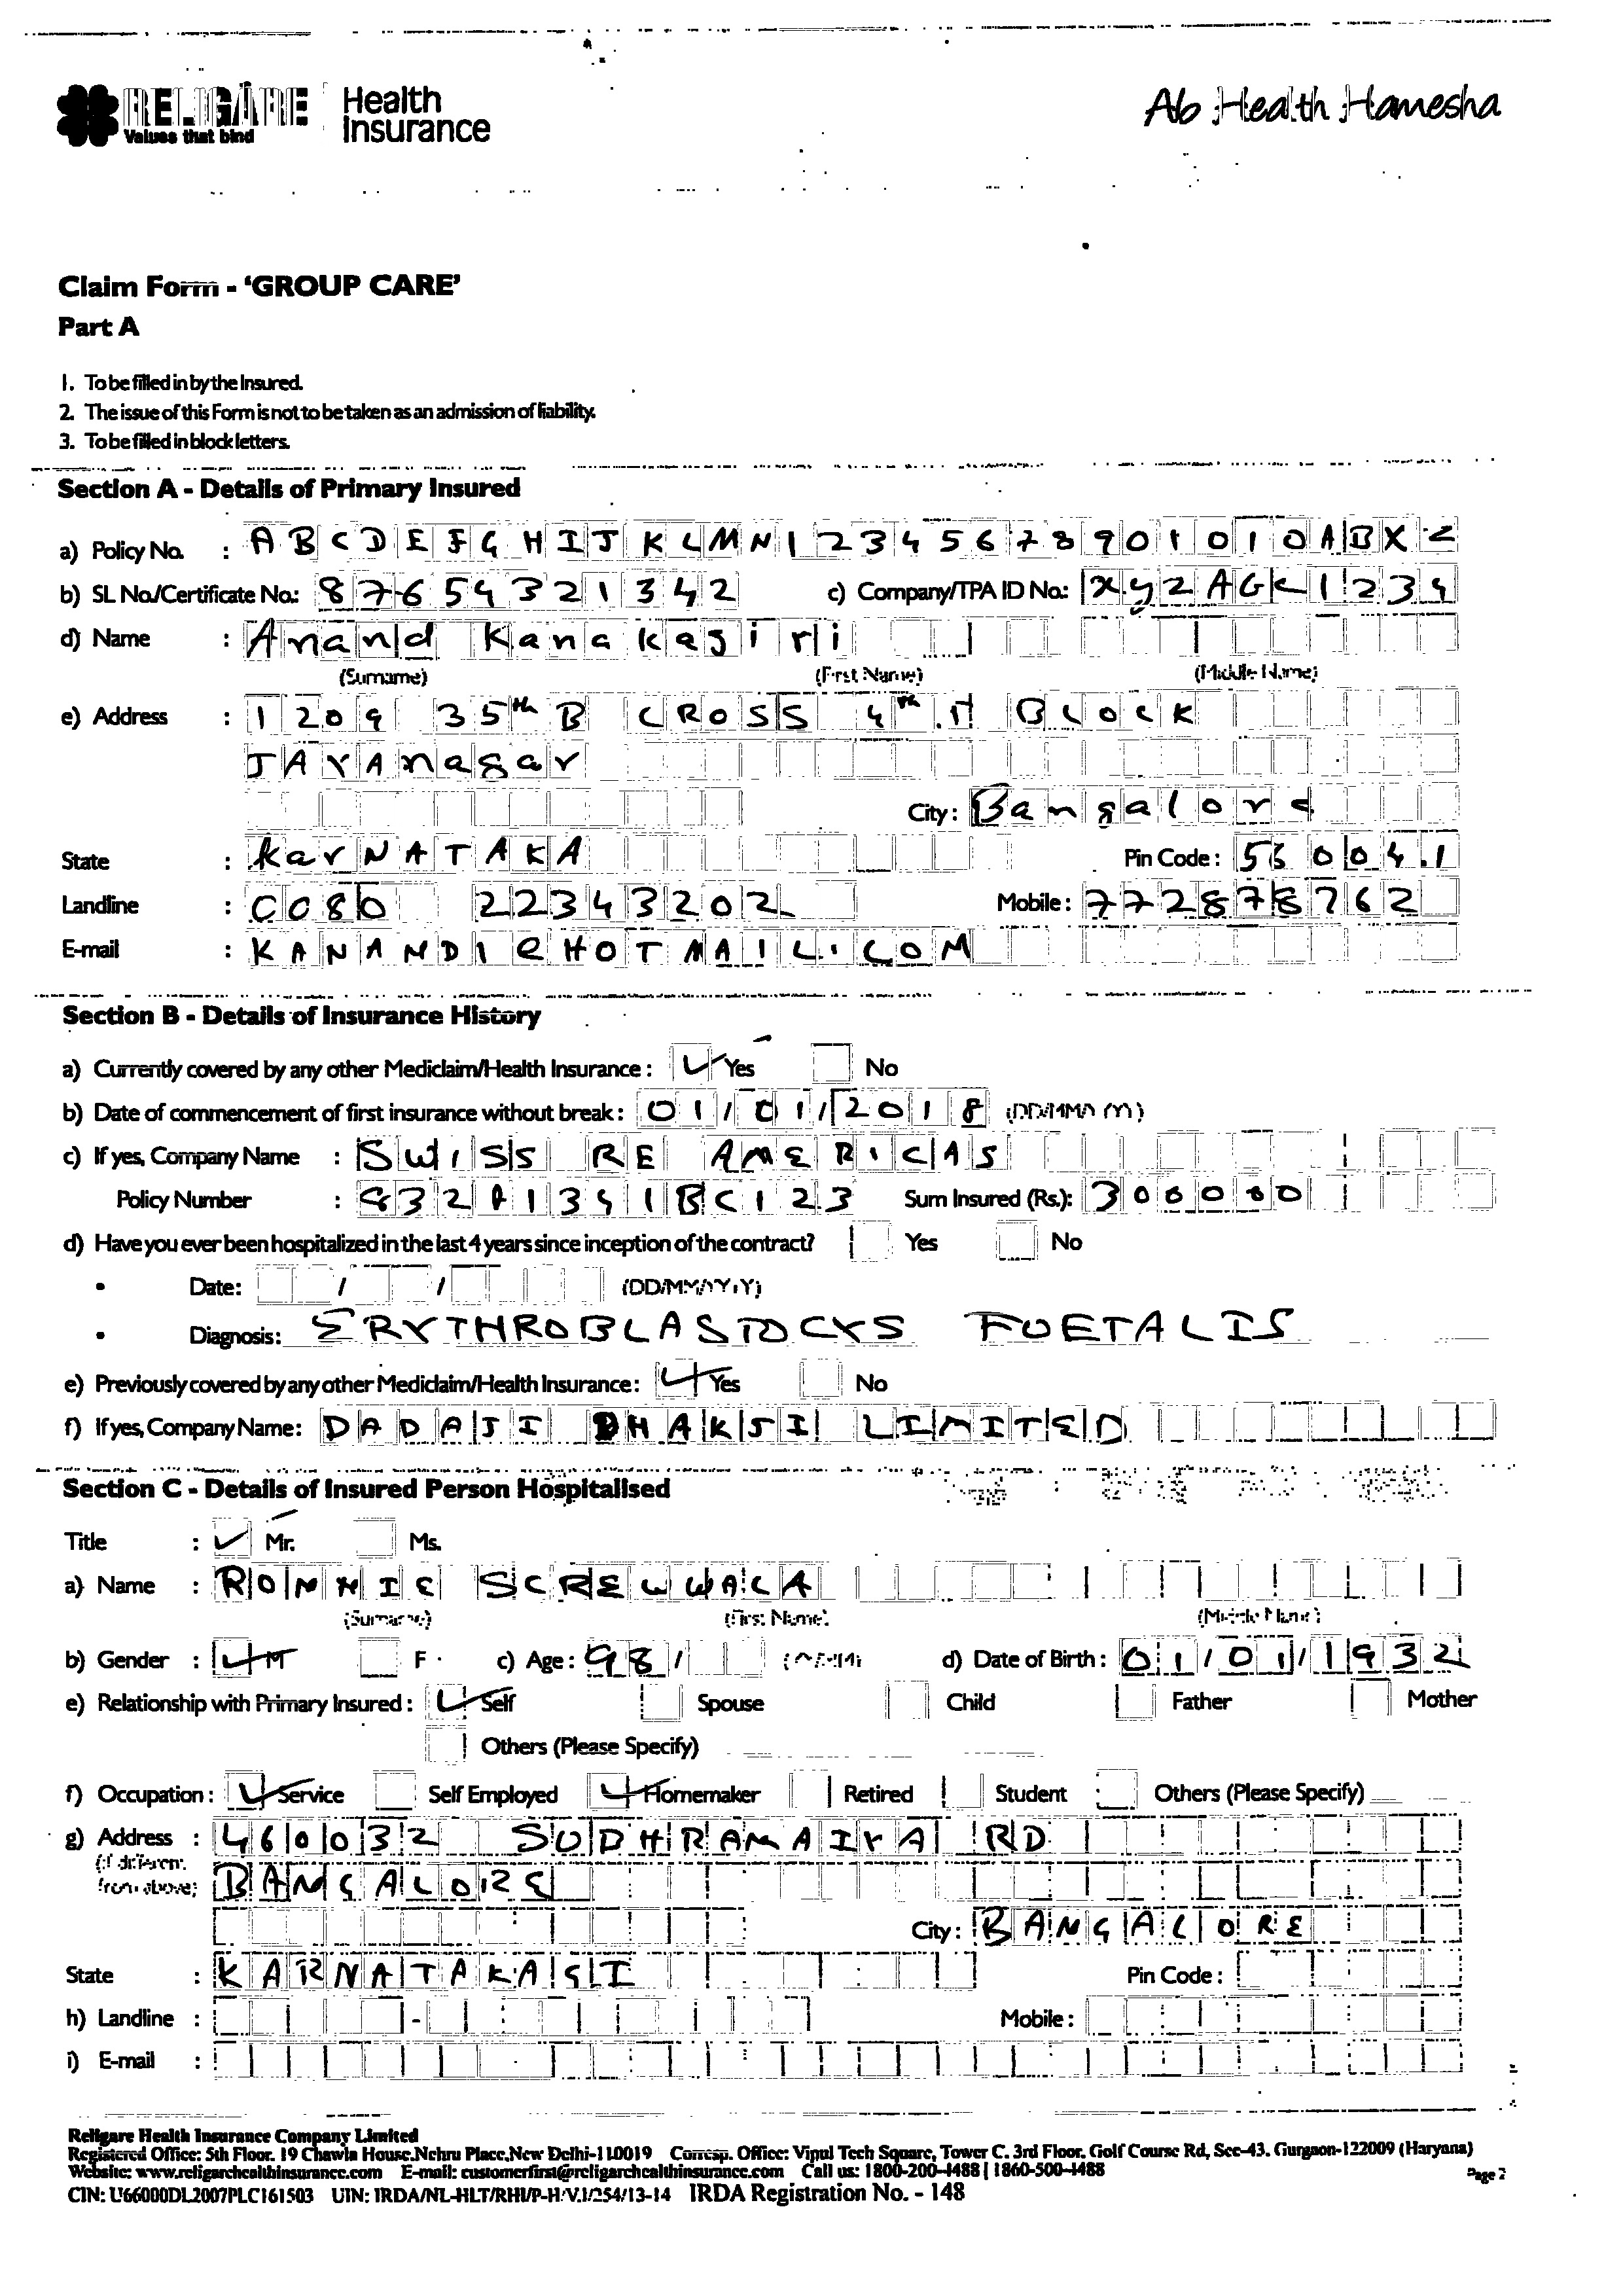 RELIGARE Health
Values that bind Insurance
Ab Health Hamesha
Claim Form - ‘GROUP CARE’
Part A
1. To be filled in by the Insured.
2. The issue of this Form is not to be taken as an admission of liability.
3. To be filled in block letters.
Section A - Details of Primary Insured
a) Policy No. : ABCDEFGHIJKLMN12345678901010ABXZ
b) SL No./Certificate No.: 87654321342 c) Company/TPA ID No.: XYZAGK1234
d) Name : Anand Kanakagiri
(Surname) (First Name) (Middle Name)
e) Address : 1209 35th B CROSS 4th T BLOCK
JAYAnagar
City : Bangalore
State : KarNATAKA Pin Code : 560041
Landline : 0080 22343202 Mobile : 772878762
E-mail : KANAND1@HOTMAIL.COM
Section B - Details of Insurance History
a) Currently covered by any other Mediclaim/Health Insurance : Yes No
b) Date of commencement of first insurance without break : 01/01/2018 (DD/MM/YY)
c) If yes, Company Name : SWISS RE AMERICAS
Policy Number : 932A1341BC123 Sum Insured (Rs.): 300000
d) Have you ever been hospitalized in the last 4 years since inception of the contract? Yes No
• Date: / / (DD/MM/YYYY)
• Diagnosis: ERYTHROBLASTOCYS FOETALIS
e) Previously covered by any other Mediclaim/Health Insurance : Yes No
f) If yes, Company Name : DADAJI DHAKJI LIMITED
Section C - Details of Insured Person Hospitalised
Title : Mr. Ms.
a) Name : RONNIE SCREWWALA
(Surname) (First Name) (Middle Name)
b) Gender : M F c) Age : 98 / d) Date of Birth : 01/01/1932
e) Relationship with Primary Insured : Self Spouse Child Father Mother
Others (Please Specify)
f) Occupation : Service Self Employed Homemaker Retired Student Others (Please Specify)
g) Address : 460032 SUDHRAMAIYA RD
(if different
from above) BANGALORE
City : BANGALORE
State : KARNATAKAGI Pin Code :
h) Landline : - Mobile :
i) E-mail :
Religare Health Insurance Company Limited
Registered Office: 5th Floor, 19 Chawla House, Nehru Place, New Delhi-110019 Corresp. Office: Vipul Tech Square, Tower C, 3rd Floor, Golf Course Rd, Sec-43, Gurgaon-122009 (Haryana)
Website: www.religarehealthinsurance.com E-mail: customerfirst@religarehealthinsurance.com Call us: 1800-200-4488 | 1860-500-4488
Page 2
CIN: U66000DL2007PLC161503 UIN: IRDA/NL-HLT/RHI/P-H/V.I/254/13-14 IRDA Registration No. - 148